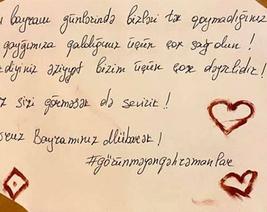 bayram günlərində bizləri tək qoymadığınız
qayğımıza qaldığınız üçün çox sağ olun!
əziyyət bizim üçün çox dəyərlidir!
sizi görməsək də sevirik!
Bayramınız Mübarək!
#görünməyənqəhrəmanlar